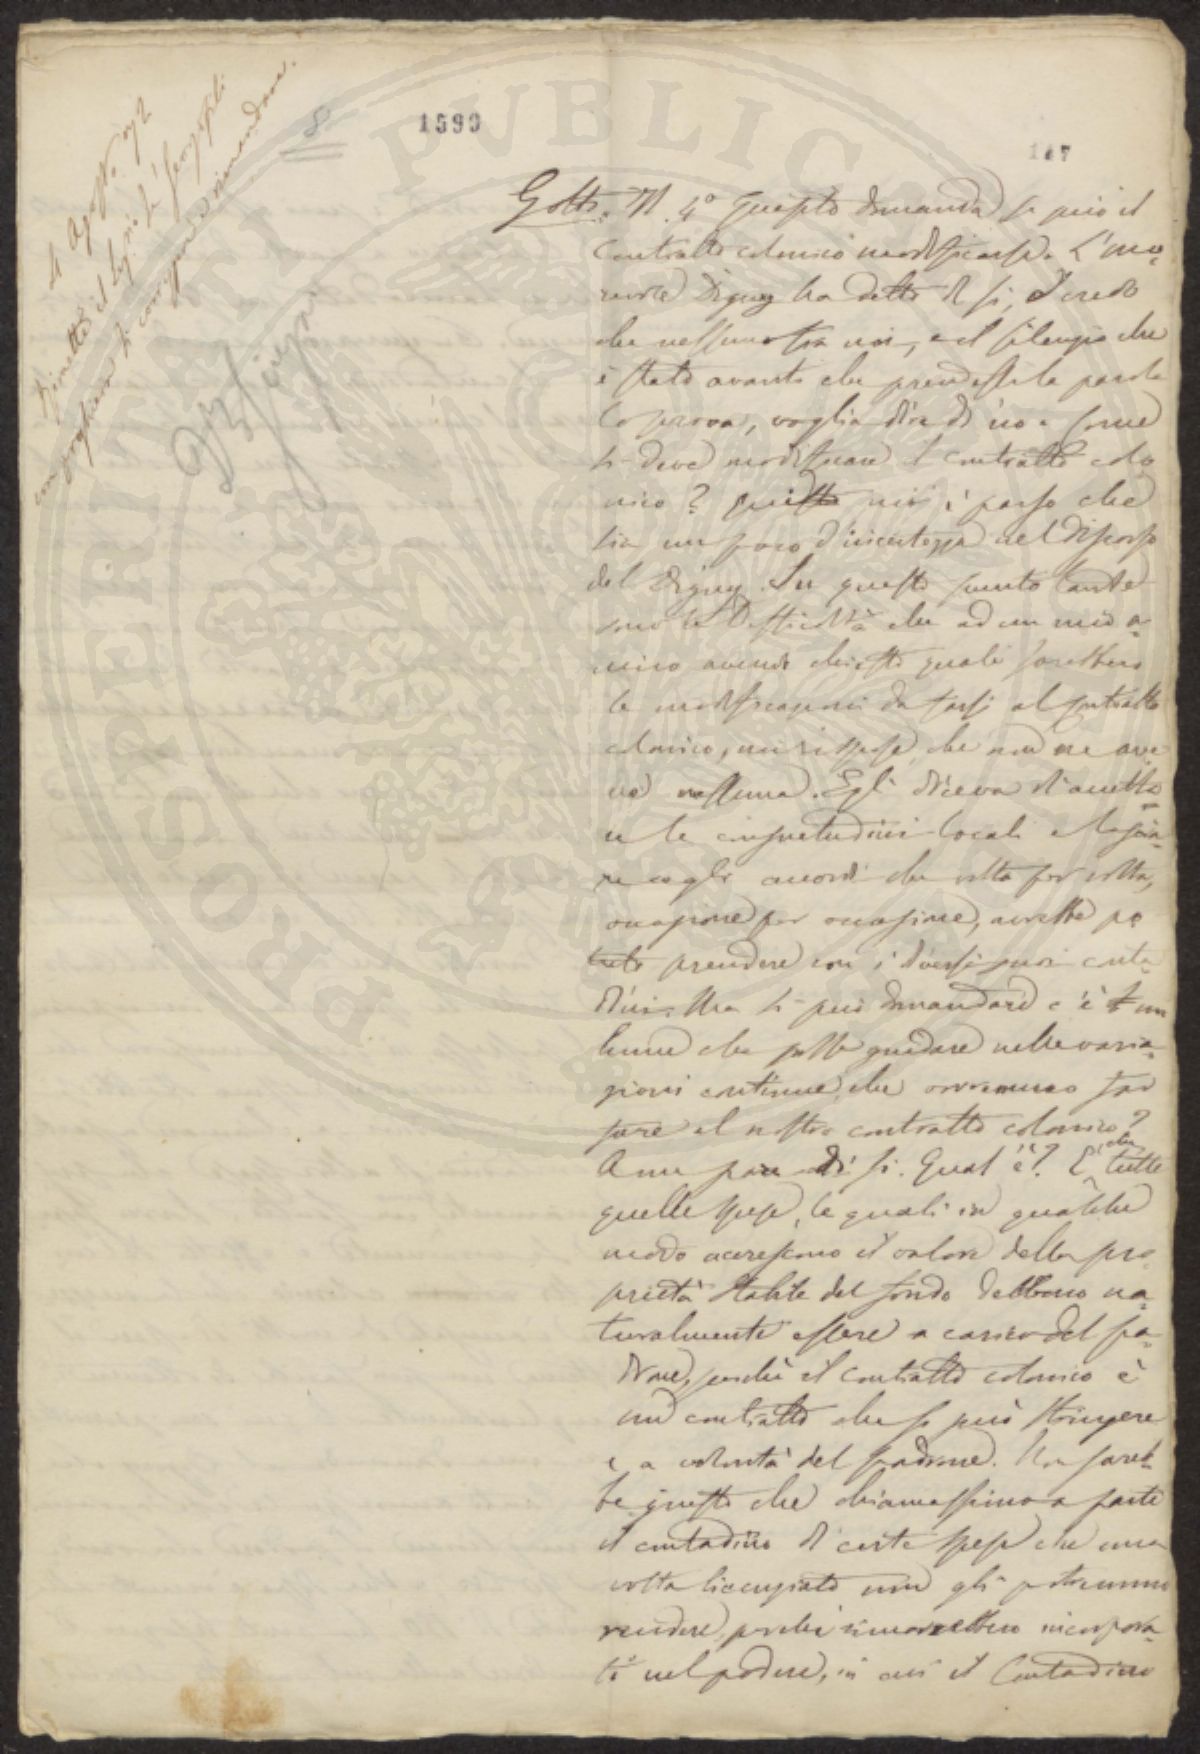 4 Agosto 72
Rimetto al Sig. re de' Georgofili
con preghiera di correggere e rimandare.
8
1593
147
PROSPERITATI PUBLICAE
Gotti. Il 4° Quesito domanda se può il
contratto colonico modificarsi. L'ono-
revole Digny ha detto di sì, Io credo
che nessuno tra noi, e il silenzio che
è stato avanti che prendessi la parola
lo prova, voglia dire di no. Come
si deve modificare il contratto colo
nico? Quì mi è parso che
sia un poco d'incertezza nel discorso
del Digny. Su questo punto tante
sono le difficoltà che ad un mio a-
mico avendo chiesto quali sarebbero
le modificazioni da farsi al contratto
colonico, mi rispose, che non ne ave
va nessuna. Egli diceva di ammette
re le consuetudini locali e
re cogli accordi che volta per volta,
occasione per occasione, avrebbe po
tuto prendere con i diversi suoi conta
dini. Ma si può domandare c'è un
lume che possa guidare nelle varia-
zioni continue, che dovremmo far
fare al nostro contratto colonico?
A me pare di sì. Qual'è? È che tutte
quelle spese, le quali in qualche
modo accrescono il valore della pro-
prietà stabile del fondo debbono na-
turalmente essere a carico del pa-
drone, perchè il contratto colonico è
un contratto che si può stringere
e a volontà del padrone. Non sareb-
be giusto che chiamassimo a parte
il contadino di certe spese che una
volta licenziato non gli potremmo
rendere, perchè rimarrebbero incorpora-
ti nel podere, in cui il Contadino